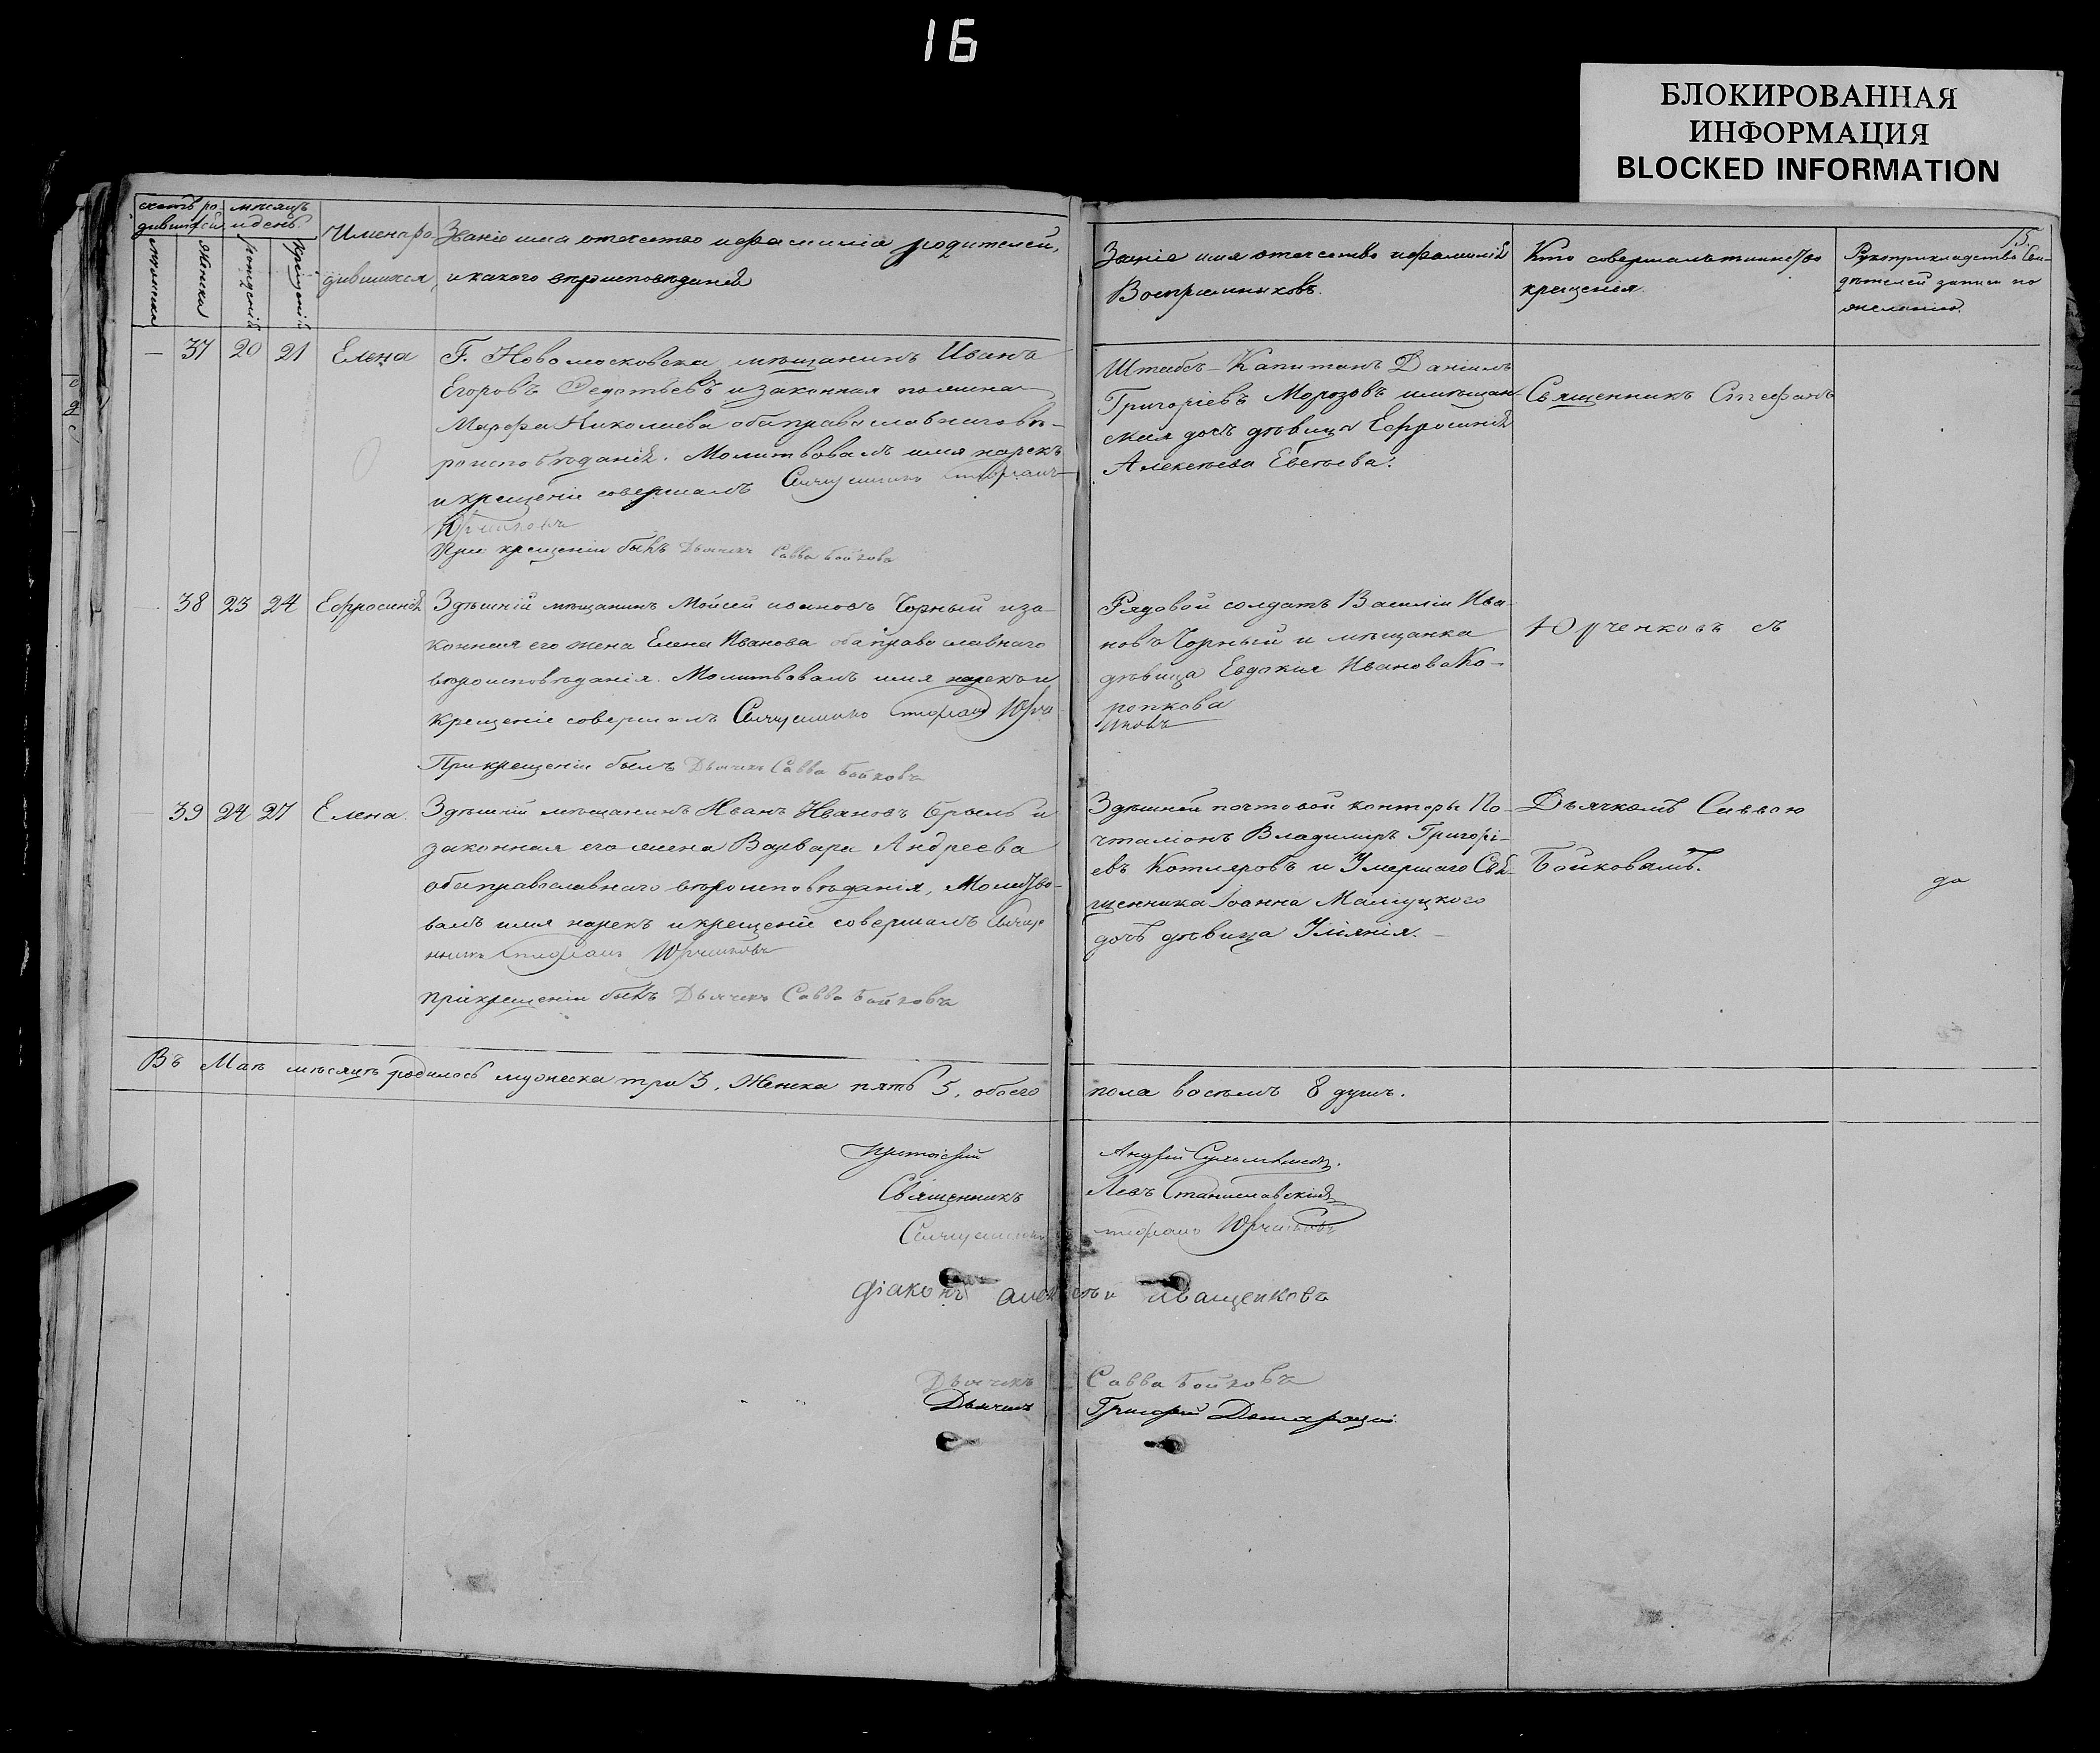 16
БЛОКИРОВАННАЯ
ИНФОРМАЦИЯ
BLOCKED INFORMATION
15.
счетъ ро- мѣсяцъ
дившихся и день
мужеска женска рожденія крещенія
Имена ро- Званіе имя отечество и фамилія родителей,
дившихся, и какого вѣроисповѣданія
Званіе имя отечество и фамилія
Воспріемниковъ.
Кто совершалъ таинство
крещенія
Рукоприкладство Сви-
дѣтелей записи по
желанію.
— 37 20 21 Елена Г. Новомосковска мѣщанинъ Иванъ
Егоровъ и законная
Марфа Николаева оба православнаго вѣ-
роисповѣданія. Молитвовалъ имя нарекъ
и крещеніе совершалъ Священникъ Стефанъ
Юрченковъ
При крещеніи былъ Дьячекъ Савва Бойковъ
Штабсъ-Капитанъ Даніилъ
Григоріевъ Морозовъ и мѣщан-
ская дочь дѣвица Ефросинія
Алексѣева
Священникъ Стефанъ
38 23 24 Ефросинія Здѣшній мѣщанинъ Мойсей ивановъ Чорный и за-
конная его жена Елена Иванова оба православнаго
вѣроисповѣданія. Молитвовалъ имя нарекъ и
крещеніе совершалъ Священникъ Стефанъ Юрче
При крещеніи былъ Дьячекъ Савва Бойковъ
Рядовой солдатъ Василій Ива-
новъ Чорный и мѣщанка
дѣвица Евдокія Иванова Ко-
ропкова
нковъ
Юрченковъ съ
39 24 27 Елена. Здѣшній мѣщанинъ Иванъ Ивановъ Брыль и
законная его жена Варвара Андреева
оба православнаго вѣроисповѣданія, Молитво-
валъ имя нарекъ и крещеніе совершалъ Священ
никъ Стефанъ Юрченковъ
при крещеніи былъ Дьячекъ Савва Бойковъ
Здѣшней почтовой конторы По-
чталіонъ Владимиръ Григорі-
евъ Котляровъ и Умершаго Свя-
щенника Іоанна
дочь дѣвица Уліянія. —
Дьячкомъ Саввою
Бойковымъ.
да
Въ Маѣ мѣсяцѣ родилось мужеска три 3, Женска пять 5, обоего пола восѣмъ 8 душъ.
Протоіерей Андрей
Священникъ Левъ Станиславскій
Священникъ Стефанъ Юрченковъ
діаконъ алексѣй иващенковъ
Дьячекъ Савва Бойковъ
Дьячекъ Григорій